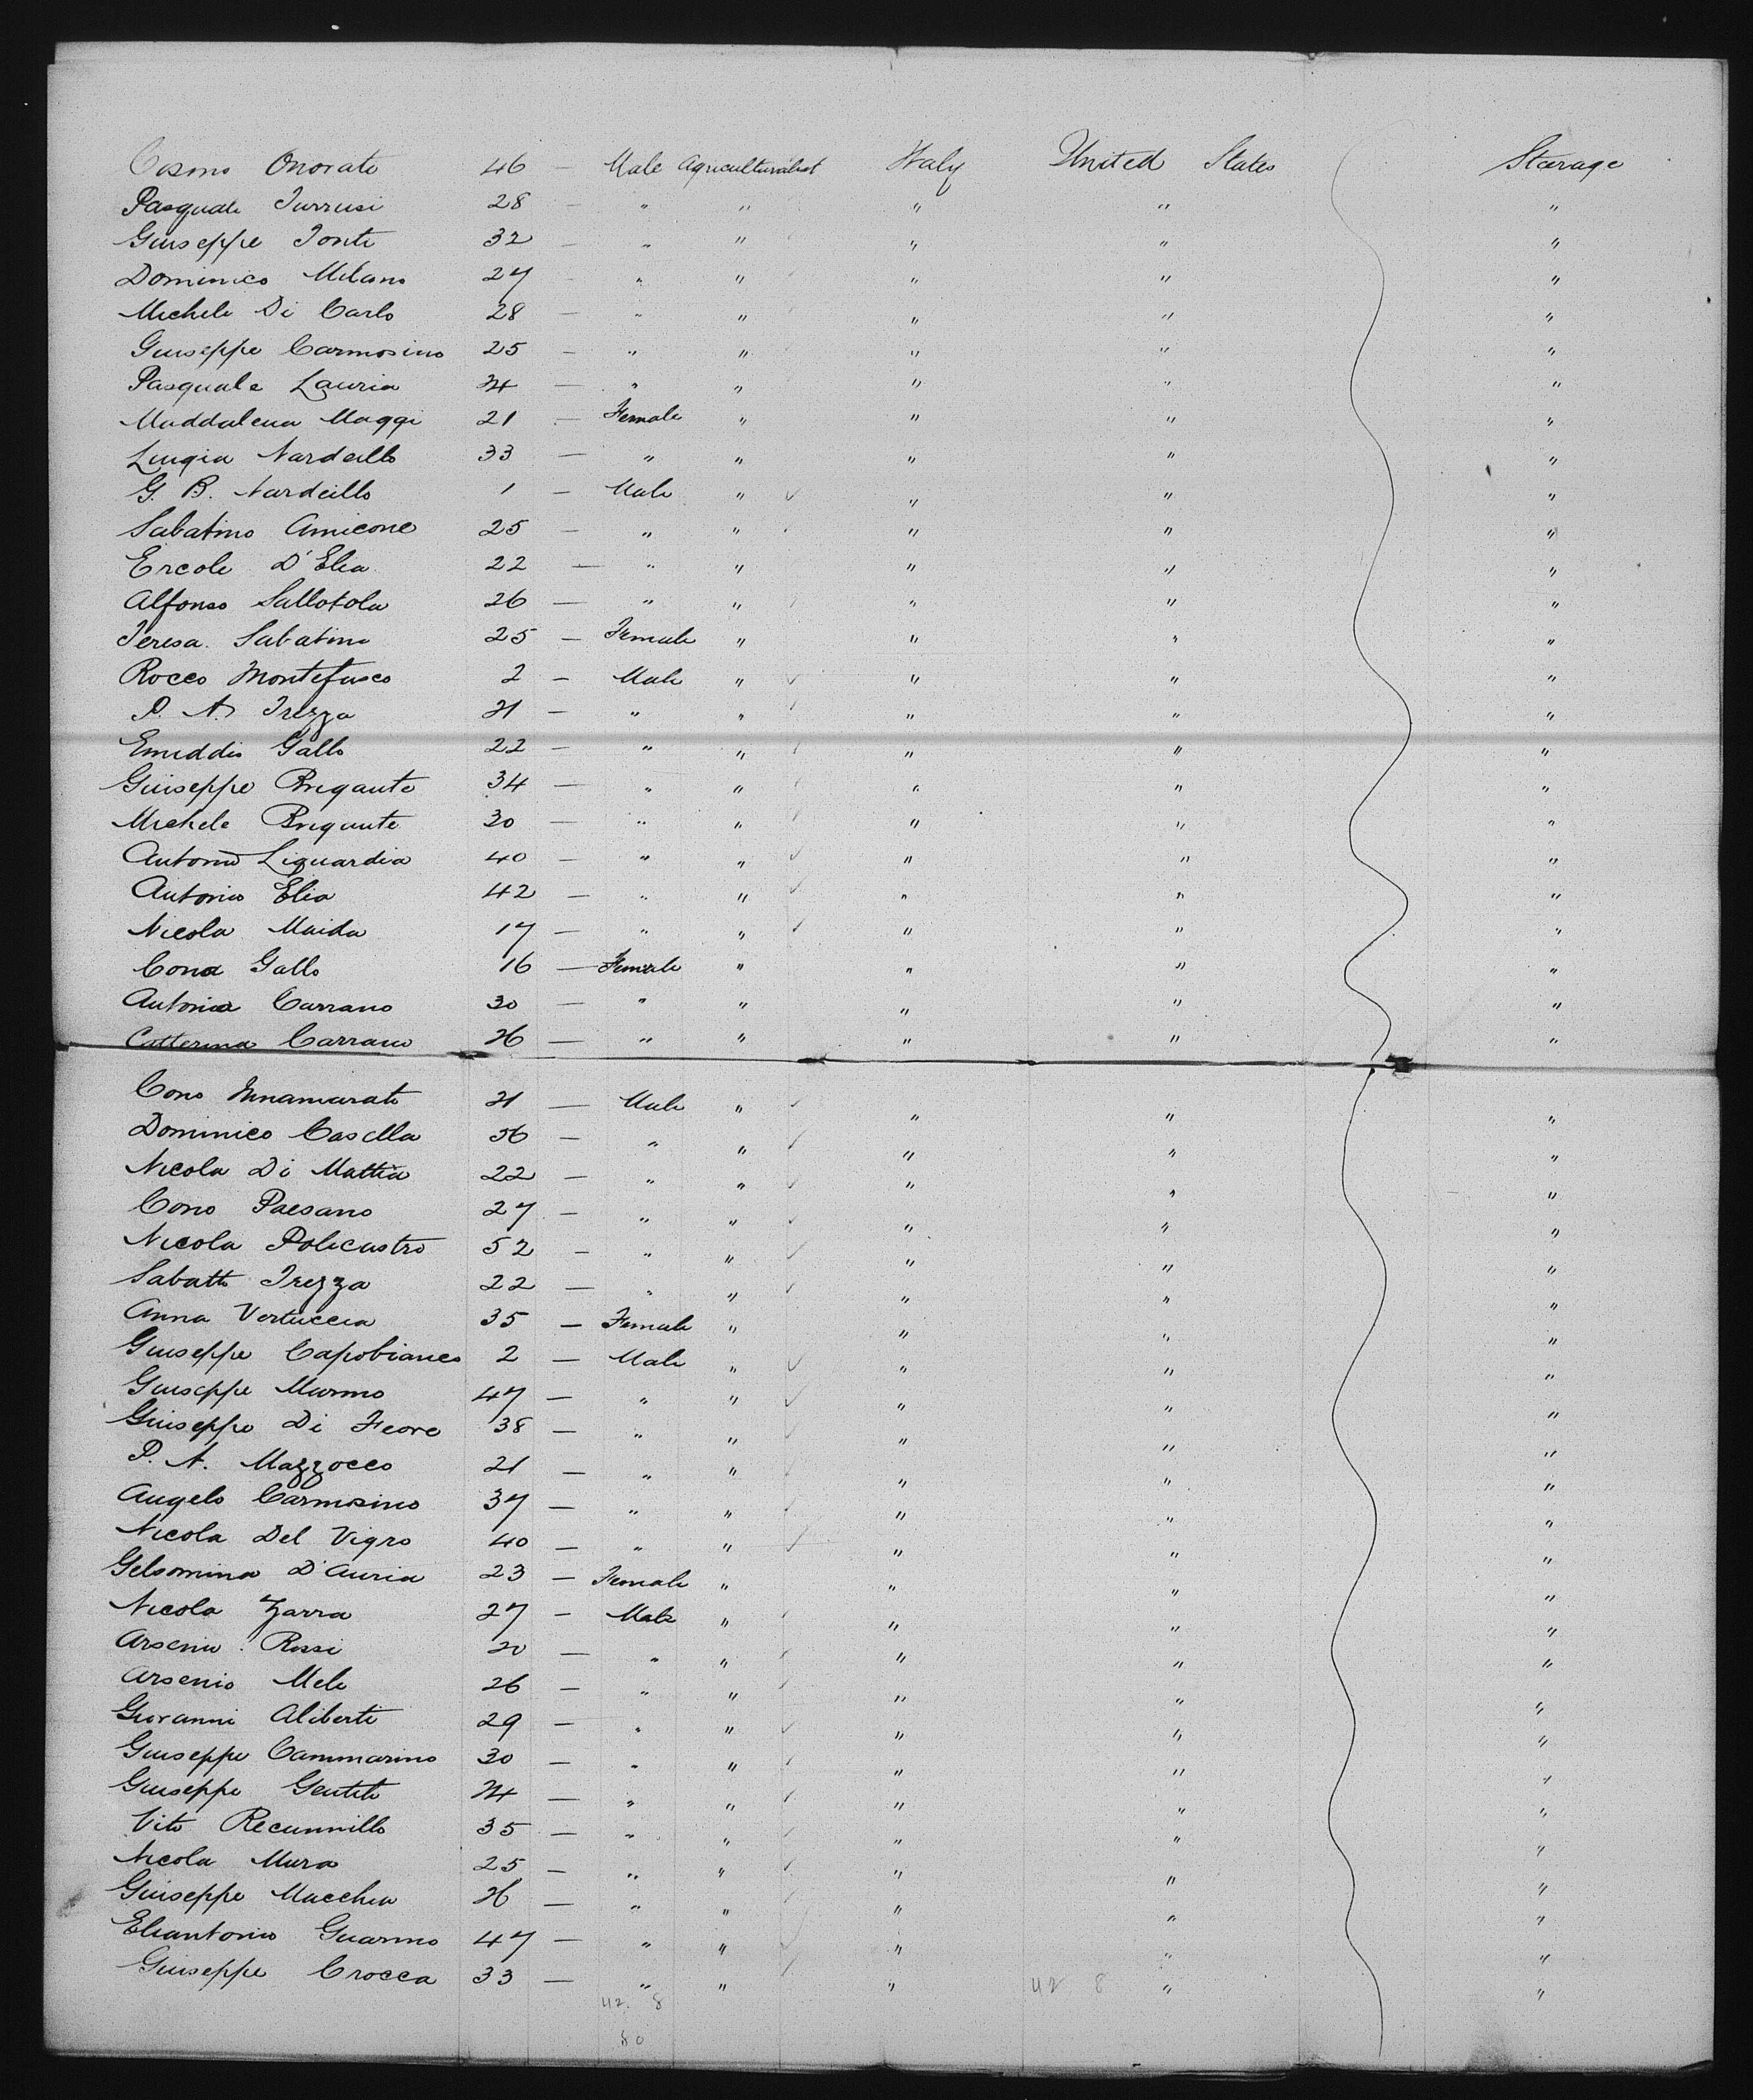 Cosmo Onorato 46 — Male Agriculturalist Italy United States Steerage
Pasquale Turrusi 28 — " " " " "
Giuseppe Tonti 32 — " " " " "
Dominico Milano 27 — " " " " "
Michele Di Carlo 28 — " " " " "
Giuseppe Carmosino 25 — " " " " "
Pasquale Lauria 24 — " " " " "
Maddalena Maggi 21 — Female " " " "
Luigia Nardeillo 33 — " " " " "
G. B. Nardeillo 1 — Male " ✓ " " "
Sabatino Amicone 25 — " " " " "
Ercole D'Elia 22 — " " " " "
Alfonso Sallotola 26 — " " " " "
Teresa Sabatino 25 — Female " " " "
Rocco Montefusco 2 — Male " ✓ " " "
P. A. Trezza 21 — " " ✓ " " "
Emiddio Gallo 22 — " " ✓ " " "
Giuseppe Brigante 34 — " " ✓ " " "
Michele Brigante 30 — " " ✓ " " "
Antonio Liguardia 40 — " " ✓ " " "
Antonio Elia 42 — " " ✓ " " "
Nicola Maida 17 — " " ✓ " " "
Cona Gallo 16 — Female " " " "
Antonia Carrano 30 — " " " " "
Catterina Carrano 26 — " " " " "
Cono Innamarato 21 — Male " ✓ " " "
Dominico Casella 36 — " " ✓ " " "
Nicola Di Mattia 22 — " " ✓ " " "
Cono Paesano 27 — " " ✓ " " "
Nicola Policastro 52 — " " ✓ " " "
Sabatto Trezza 22 — " " ✓ " " "
Anna Vertuccia 35 — Female " " " "
Giuseppe Capobianco 2 — Male " ✓ " " "
Giuseppe Murmo 47 — " " ✓ " " "
Giuseppe Di Feore 38 — " " ✓ " " "
P. A. Mazzocco 21 — " " ✓ " " "
Angelo Carmosino 37 — " " ✓ " " "
Nicola Del Vigro 40 — " " ✓ " " "
Gelsomina D'Auria 23 — Female " " " "
Nicola Zarra 27 — Male " ✓ " " "
Arsenio Rossi 20 — " " ✓ " " "
Arsenio Mele 26 — " " ✓ " " "
Giovanni Aliberti 29 — " " ✓ " " "
Giuseppe Cammarino 30 — " " ✓ " " "
Giuseppe Gentile 24 — " " ✓ " " "
Vito Recunnillo 35 — " " ✓ " " "
Nicola Mura 25 — " " ✓ " " "
Giuseppe Macchia 26 — " " ✓ " " "
Eliantonio Guarino 47 — " " ✓ " " "
Giuseppe Crocca 33 — " " ✓ " " "
42 8 42 8
50